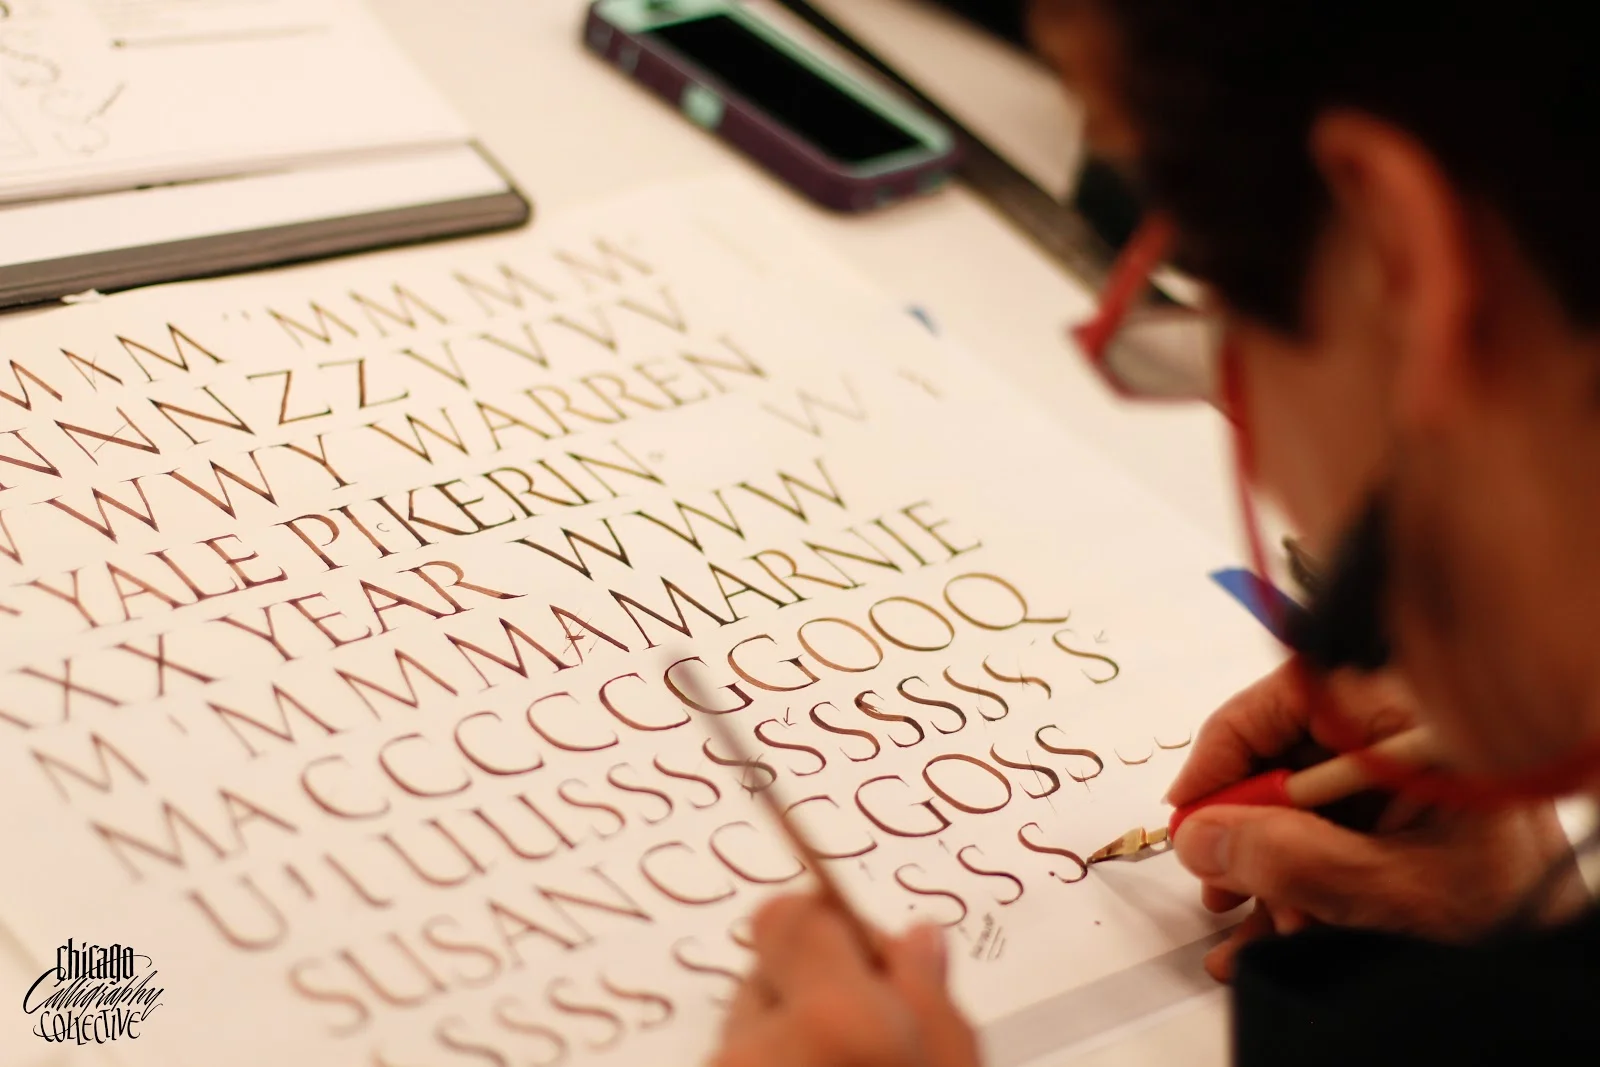 M M M MM M M
N N N Z Z V V V V
V W W Y WARREN W
YALE PIKERIN
C
X X YEAR W W W
M M M M A MARNIE
MA C C C C C G G O O Q
U I I U U U S S S S S S S S S S S S
SUSAN C C C G O S S
S S S S S S S S
chicago
Calligraphy
COLLECTIVE